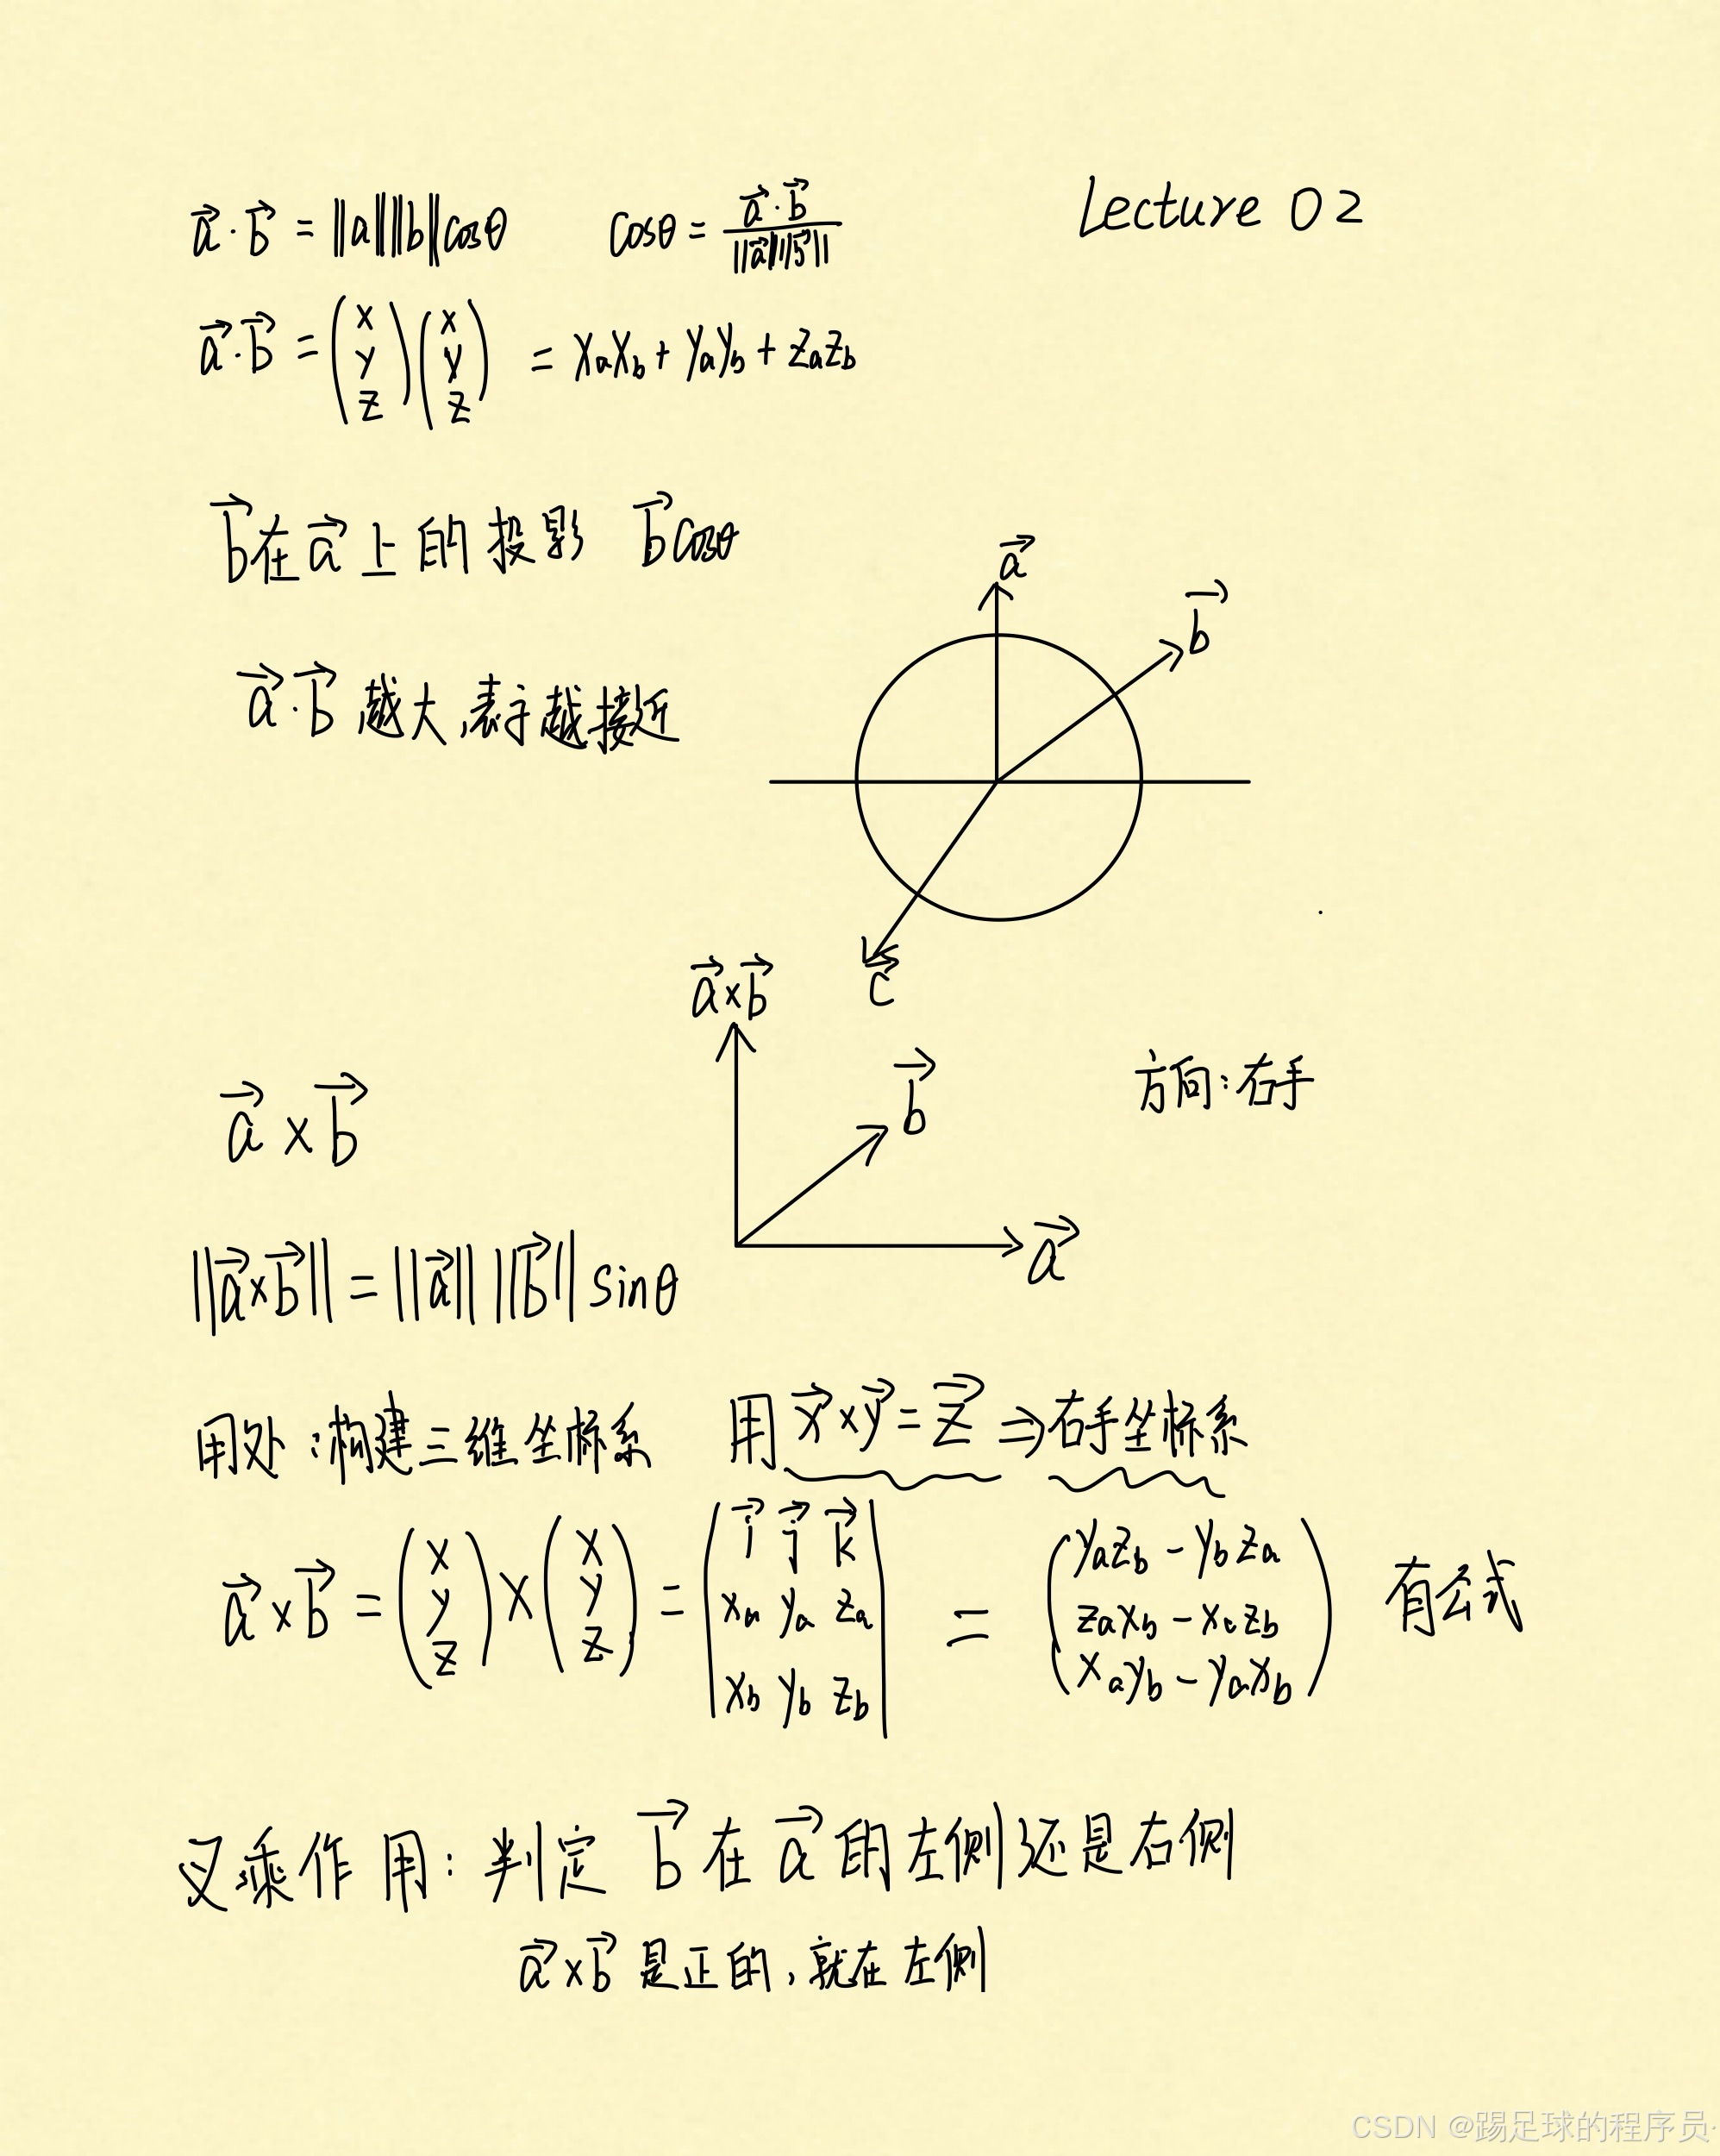 Lecture 02
a⃗·b⃗ = ||a||||b||cosθ  cosθ = a⃗·b⃗ / ||a⃗||||b⃗||
a⃗·b⃗ = (x y z)(x y z) = xₐx_b + yₐy_b + zₐz_b
b⃗在a⃗上的投影 b⃗cosθ
a⃗
b⃗
a⃗·b⃗ 越大,表示越接近
c⃗
a⃗×b⃗
b⃗
方向:右手
a⃗×b⃗
a⃗
||a⃗×b⃗|| = ||a⃗|| ||b⃗|| sinθ
用处:构建三维坐标系 用 x⃗×y⃗=z⃗ ⇒右手坐标系
a⃗×b⃗ = (x y z)×(x y z) = |i⃗ j⃗ k⃗ xₐ yₐ zₐ x_b y_b z_b| = (yₐz_b − y_bzₐ zₐx_b − xₐz_b xₐy_b − yₐx_b) 有公式
叉乘作用:判定 b⃗ 在 a⃗ 的左侧还是右侧
a⃗×b⃗ 是正的,就在左侧
CSDN @踢足球的程序员·